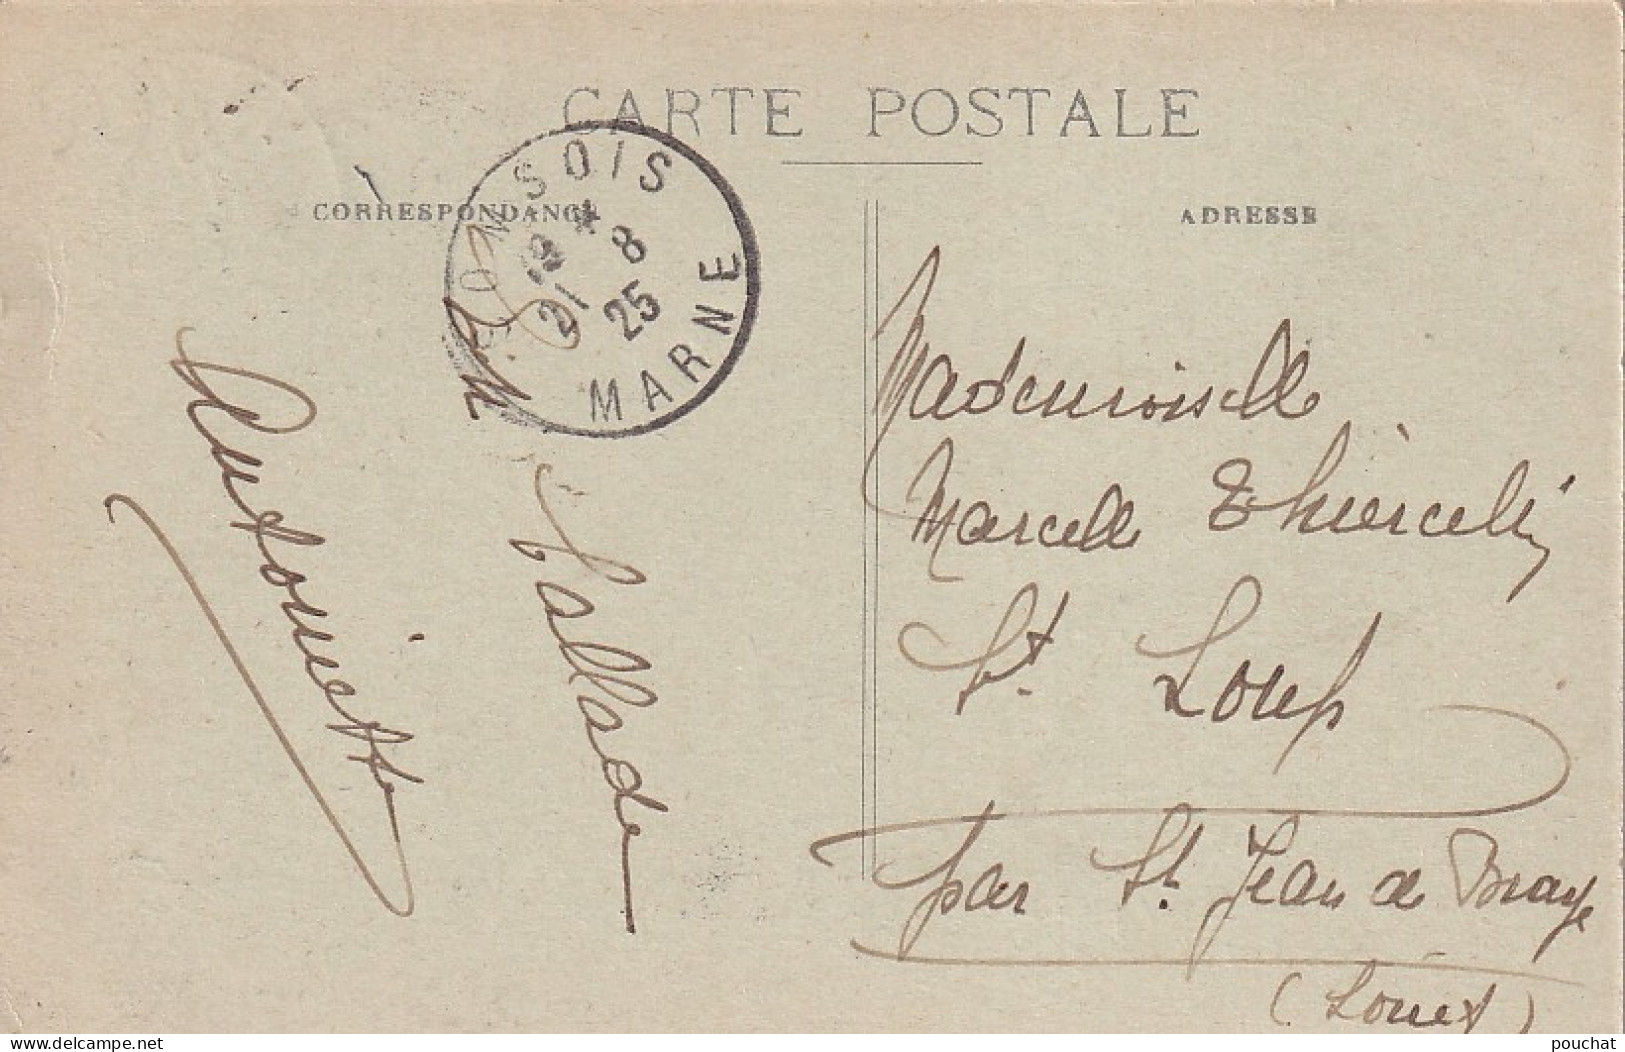 CARTE POSTALE
CORRESPONDANCE
ADRESSE
SOMSOIS
19 4
21 8
25
MARNE
Antoinette
Vallade
Mademoiselle
Marcelle Thiercelin
St. Loup
par St. Jean de Braye
(Loiret)
www.delcampe.net
pouchat